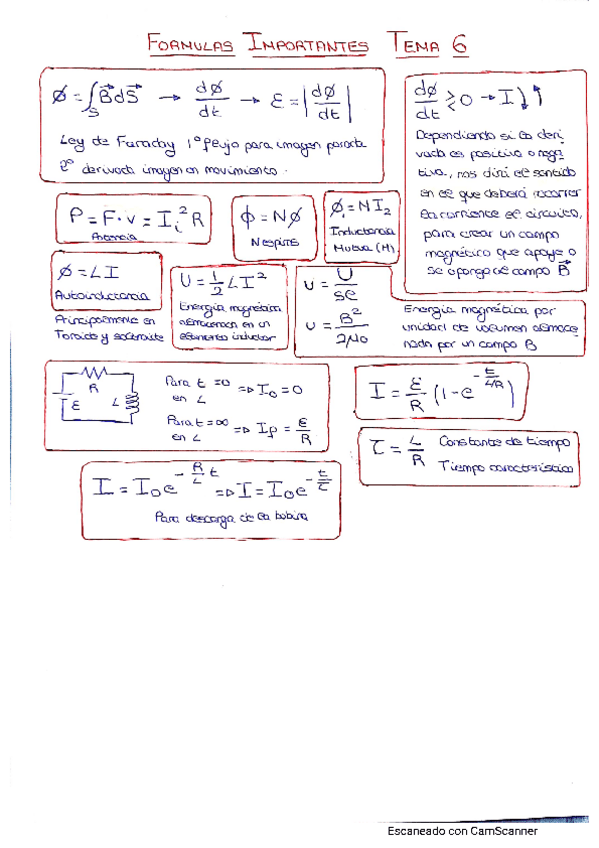 FORMULAS IMPORTANTES TEMA 6
Ø = ∫S B⃗ dS⃗ → dØ/dt → ε = |dØ/dt|
Ley de Faraday 1º flujo para imagen parada
2º derivada imagen en movimiento.
dØ/dt ≷ 0 → I ⤸↑
Dependiendo si la deri
vada es positiva o nega
tiva, nos dirá el sentido
en el que deberá recorrer
la corriente el circuito,
para crear un campo
magnético que apoye o
se oponga al campo B⃗
P = F·v = Ii² R
Potencia
ϕ = NØ
N espiras
Ø1 = M I2
Inductancia
Mutua (M)
Ø = L I
Autoinductancia
Principalmente en
Toroide y solenoide
U = 1/2 L I²
Energía magnética
almacenada en un
elemento inductor
u = U/Sl
u = B²/2μ0
Energía magnética por
unidad de volumen almace
nada por un campo B
R
ε
L
Para t = 0 ⇒ I0 = 0
en L
Para t = ∞ ⇒ If = ε/R
en L
I = ε/R (1 - e^(-t/(L/R)))
τ = L/R Constante de tiempo
Tiempo característico
I = I0 e^(-R/L t) ⇒ I = I0 e^(-t/τ)
Para descarga de la bobina
Escaneado con CamScanner